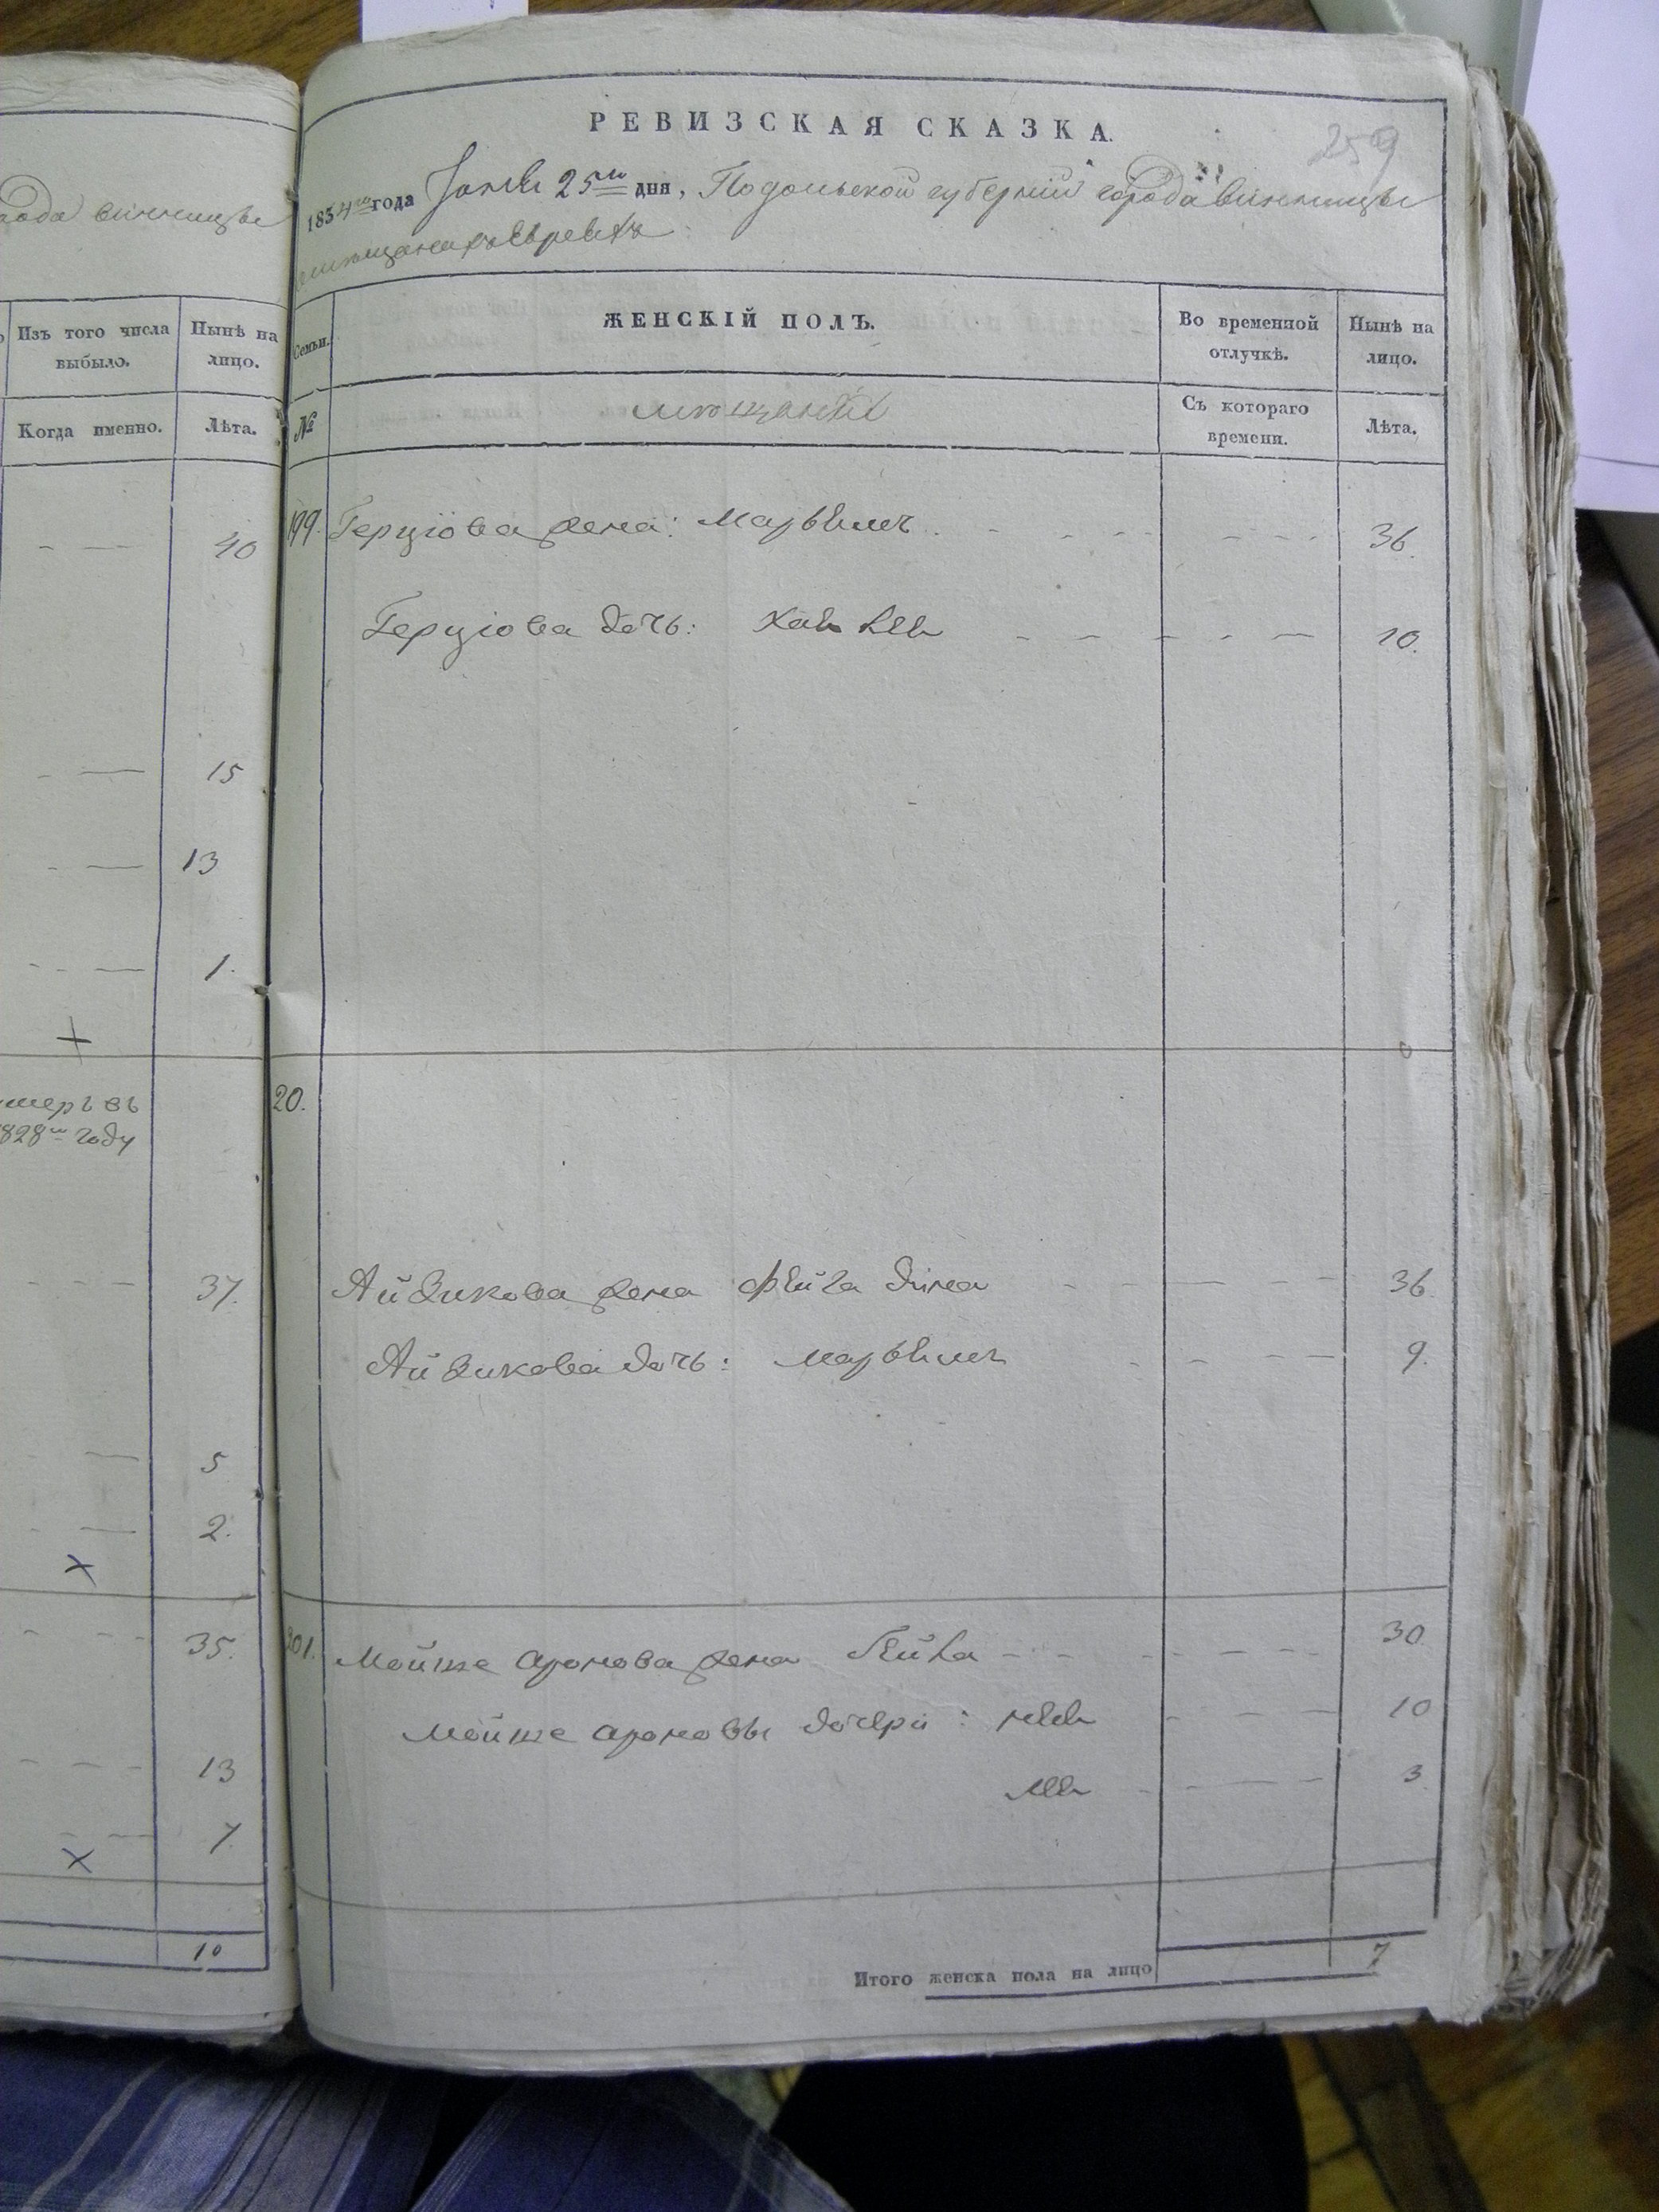 рода винницы
Изъ того числа выбыло.
Нынѣ на лицо.
Когда именно.
Лѣта.
40
15
13
1.
умеръ въ
828го году
37.
5
2.
35.
13
7.
10
РЕВИЗСКАЯ СКАЗКА.
259
1834го года 25го дня, Подольской губерніи города винницы
мѣщанахъ Евреяхъ
Семьи.
ЖЕНСКІЙ ПОЛЪ.
Во временной отлучкѣ.
Нынѣ на лицо.
№
мѣщанки
Съ котораго времени.
Лѣта.
199. Герціова жена: Марьемъ 36.
Герціова дочь: 10.
20.
Айзикова жена Фейга Дина 36.
Айзикова дочь: Марьемъ 9.
201. Мойше Аронова жена Бейла 30
Мойше Ароновы дочери: 10
3.
Итого женска пола на лицо 7